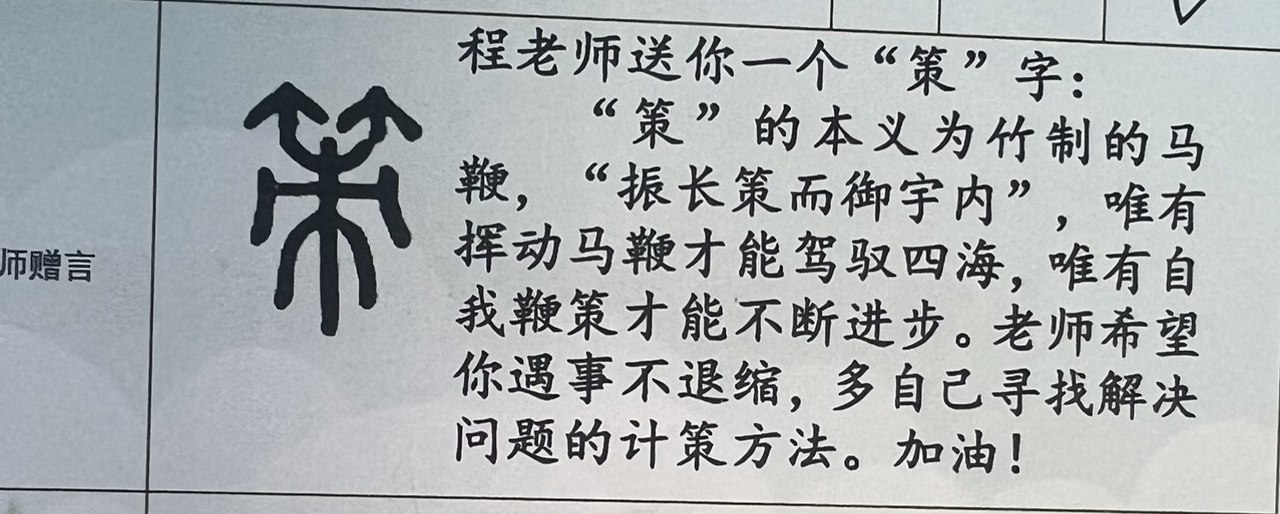 师赠言
程老师送你一个“策”字：
“策”的本义为竹制的马
鞭，“振长策而御宇内”，唯有
挥动马鞭才能驾驭四海，唯有自
我鞭策才能不断进步。老师希望
你遇事不退缩，多自己寻找解决
问题的计策方法。加油！